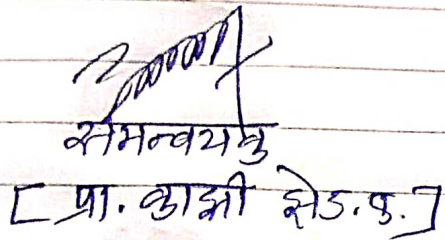 समन्वयक
[ प्रा. काझी झेड. ए. ]